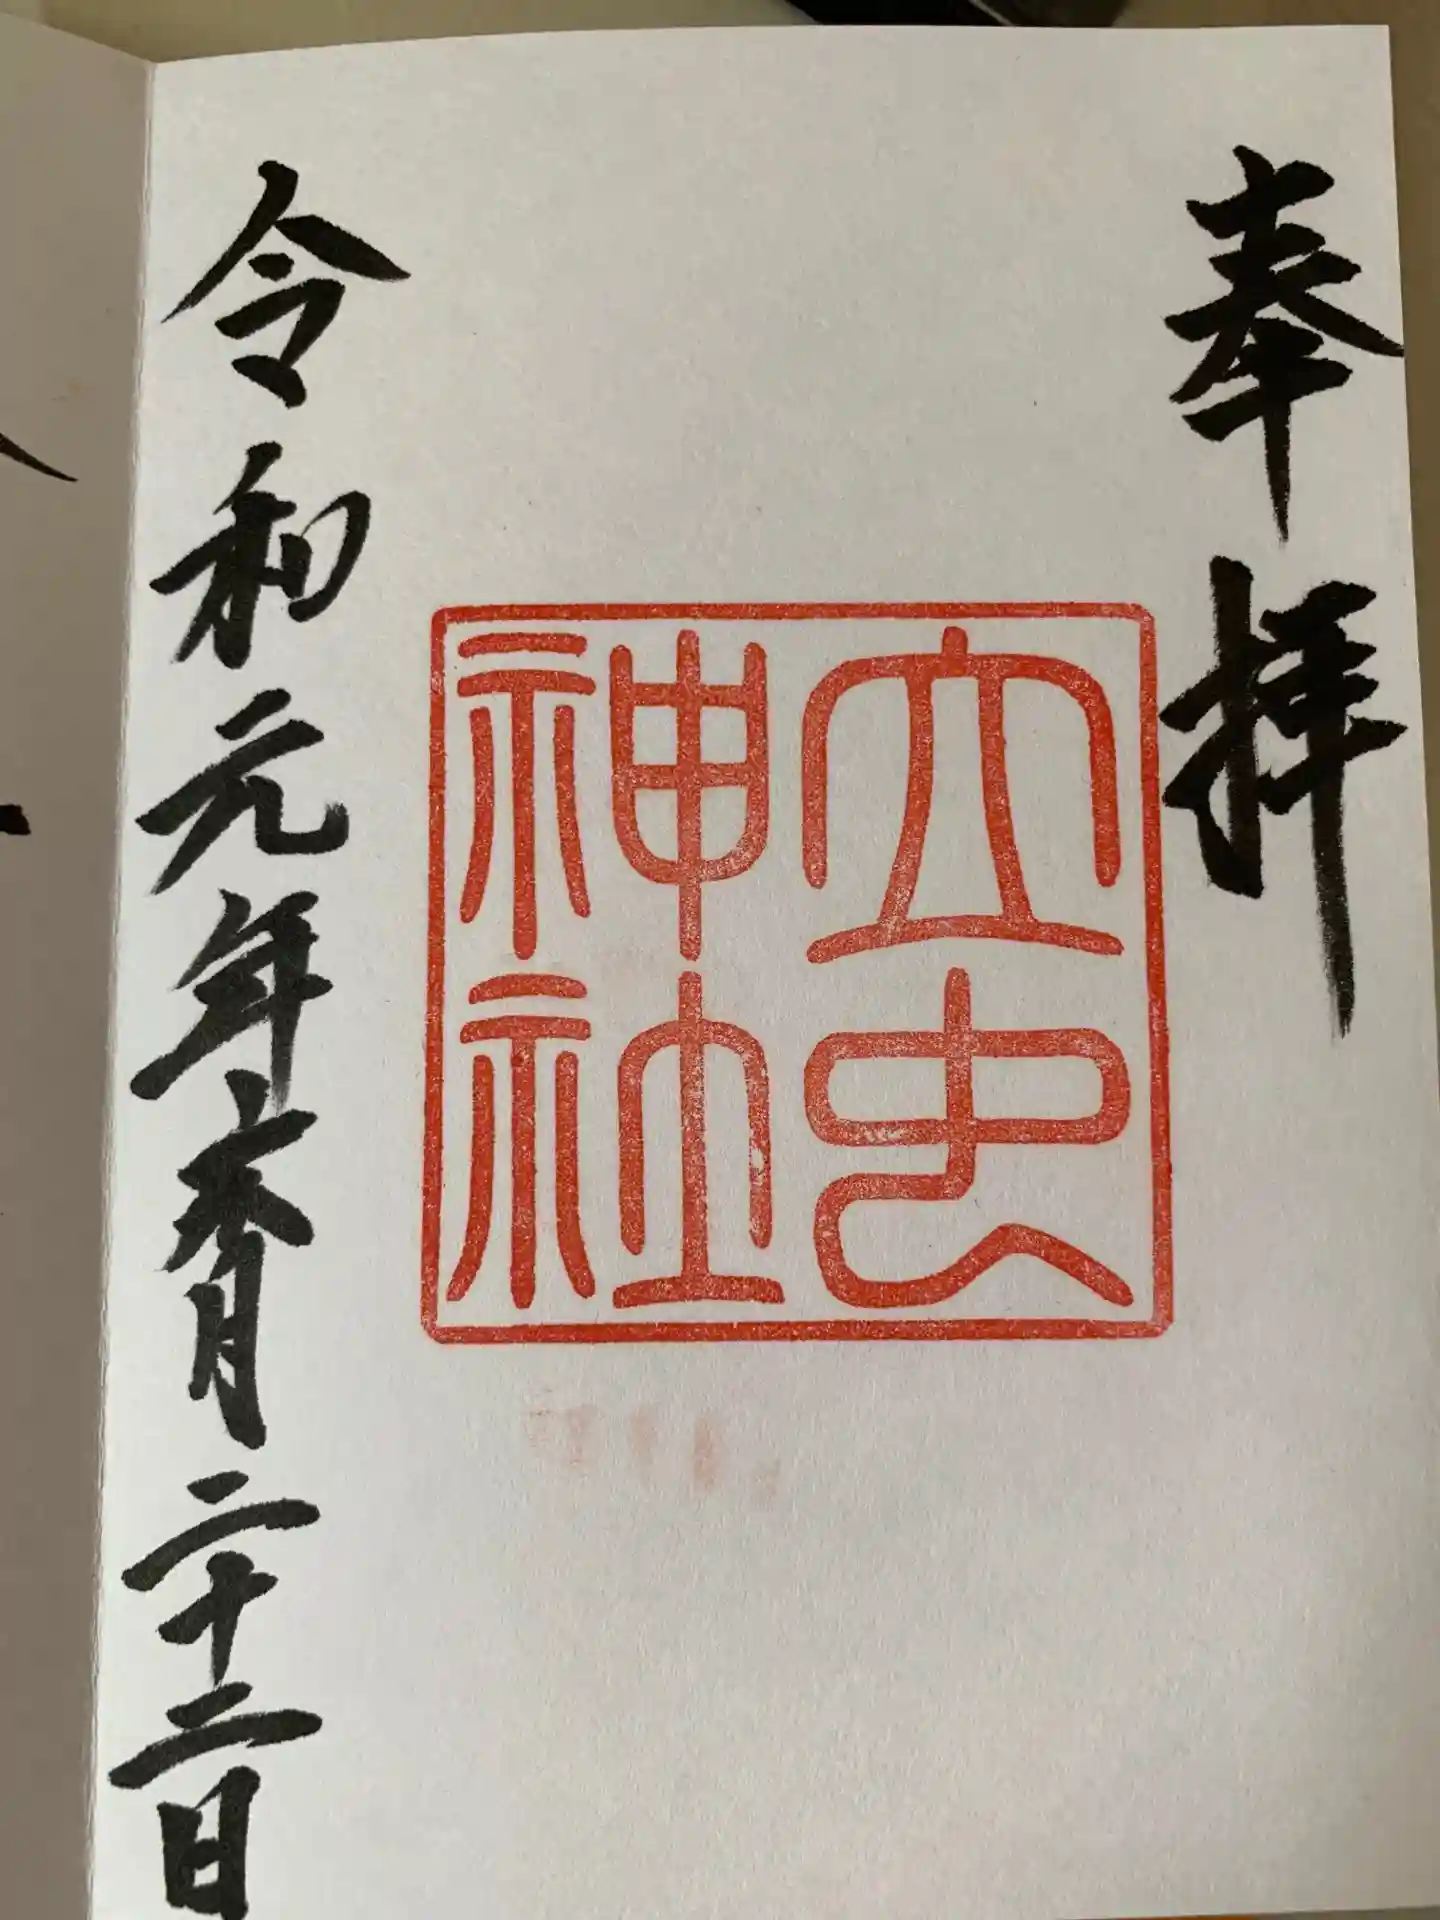 奉拝
立虫
神社
令和元年六月二十二日